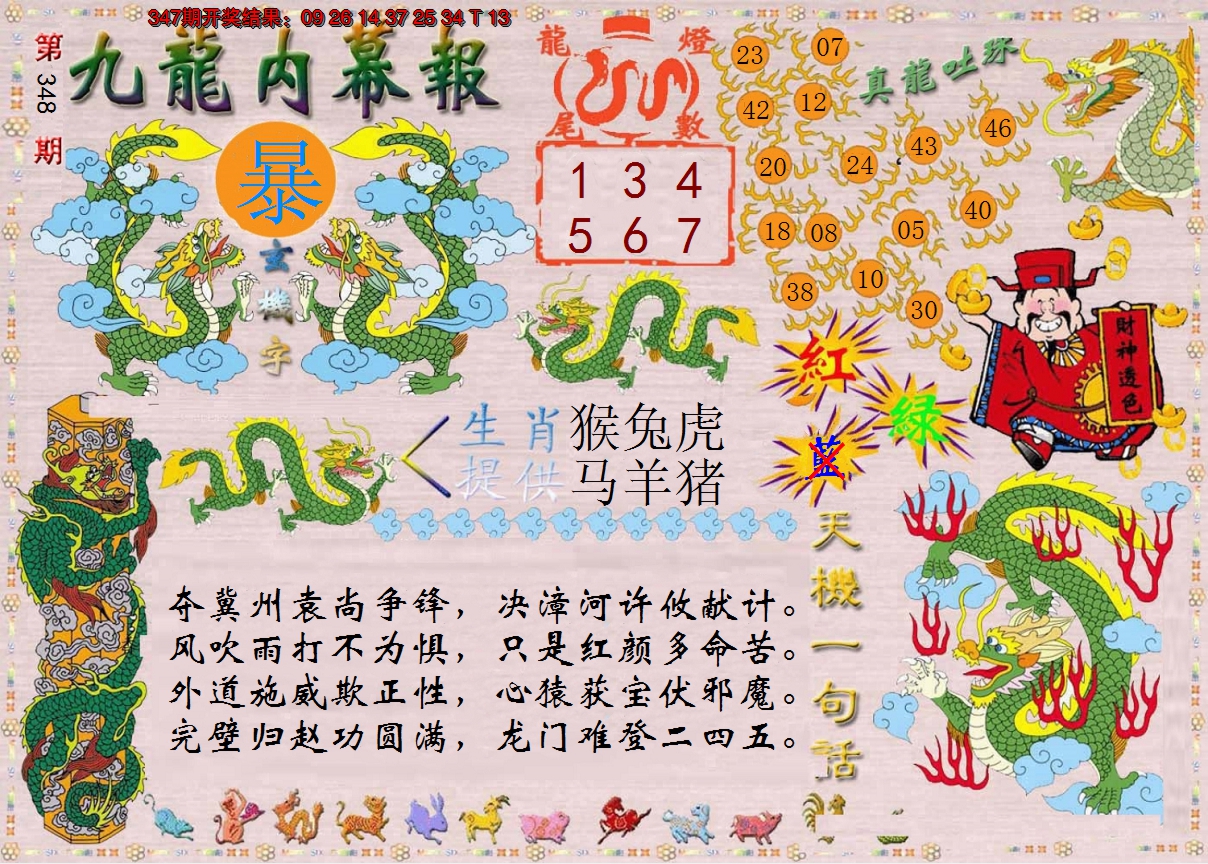 347期开奖结果：09 26 14 37 25 34 T 13
第348期
九龍内幕報
暴
玄機字
龍燈
尾數
1 3 4
5 6 7
真龍吐珠
23 07
42 12
43 46
20 24
40
18 08 05
38 10
30
財神透色
紅
綠
藍
生肖 猴兔虎
提供 马羊猪
夺冀州袁尚争锋，决漳河许攸献计。
风吹雨打不为惧，只是红颜多命苦。
外道施威欺正性，心猿获宝伏邪魔。
完壁归赵功圆满，龙门难登二四五。
天機一句話